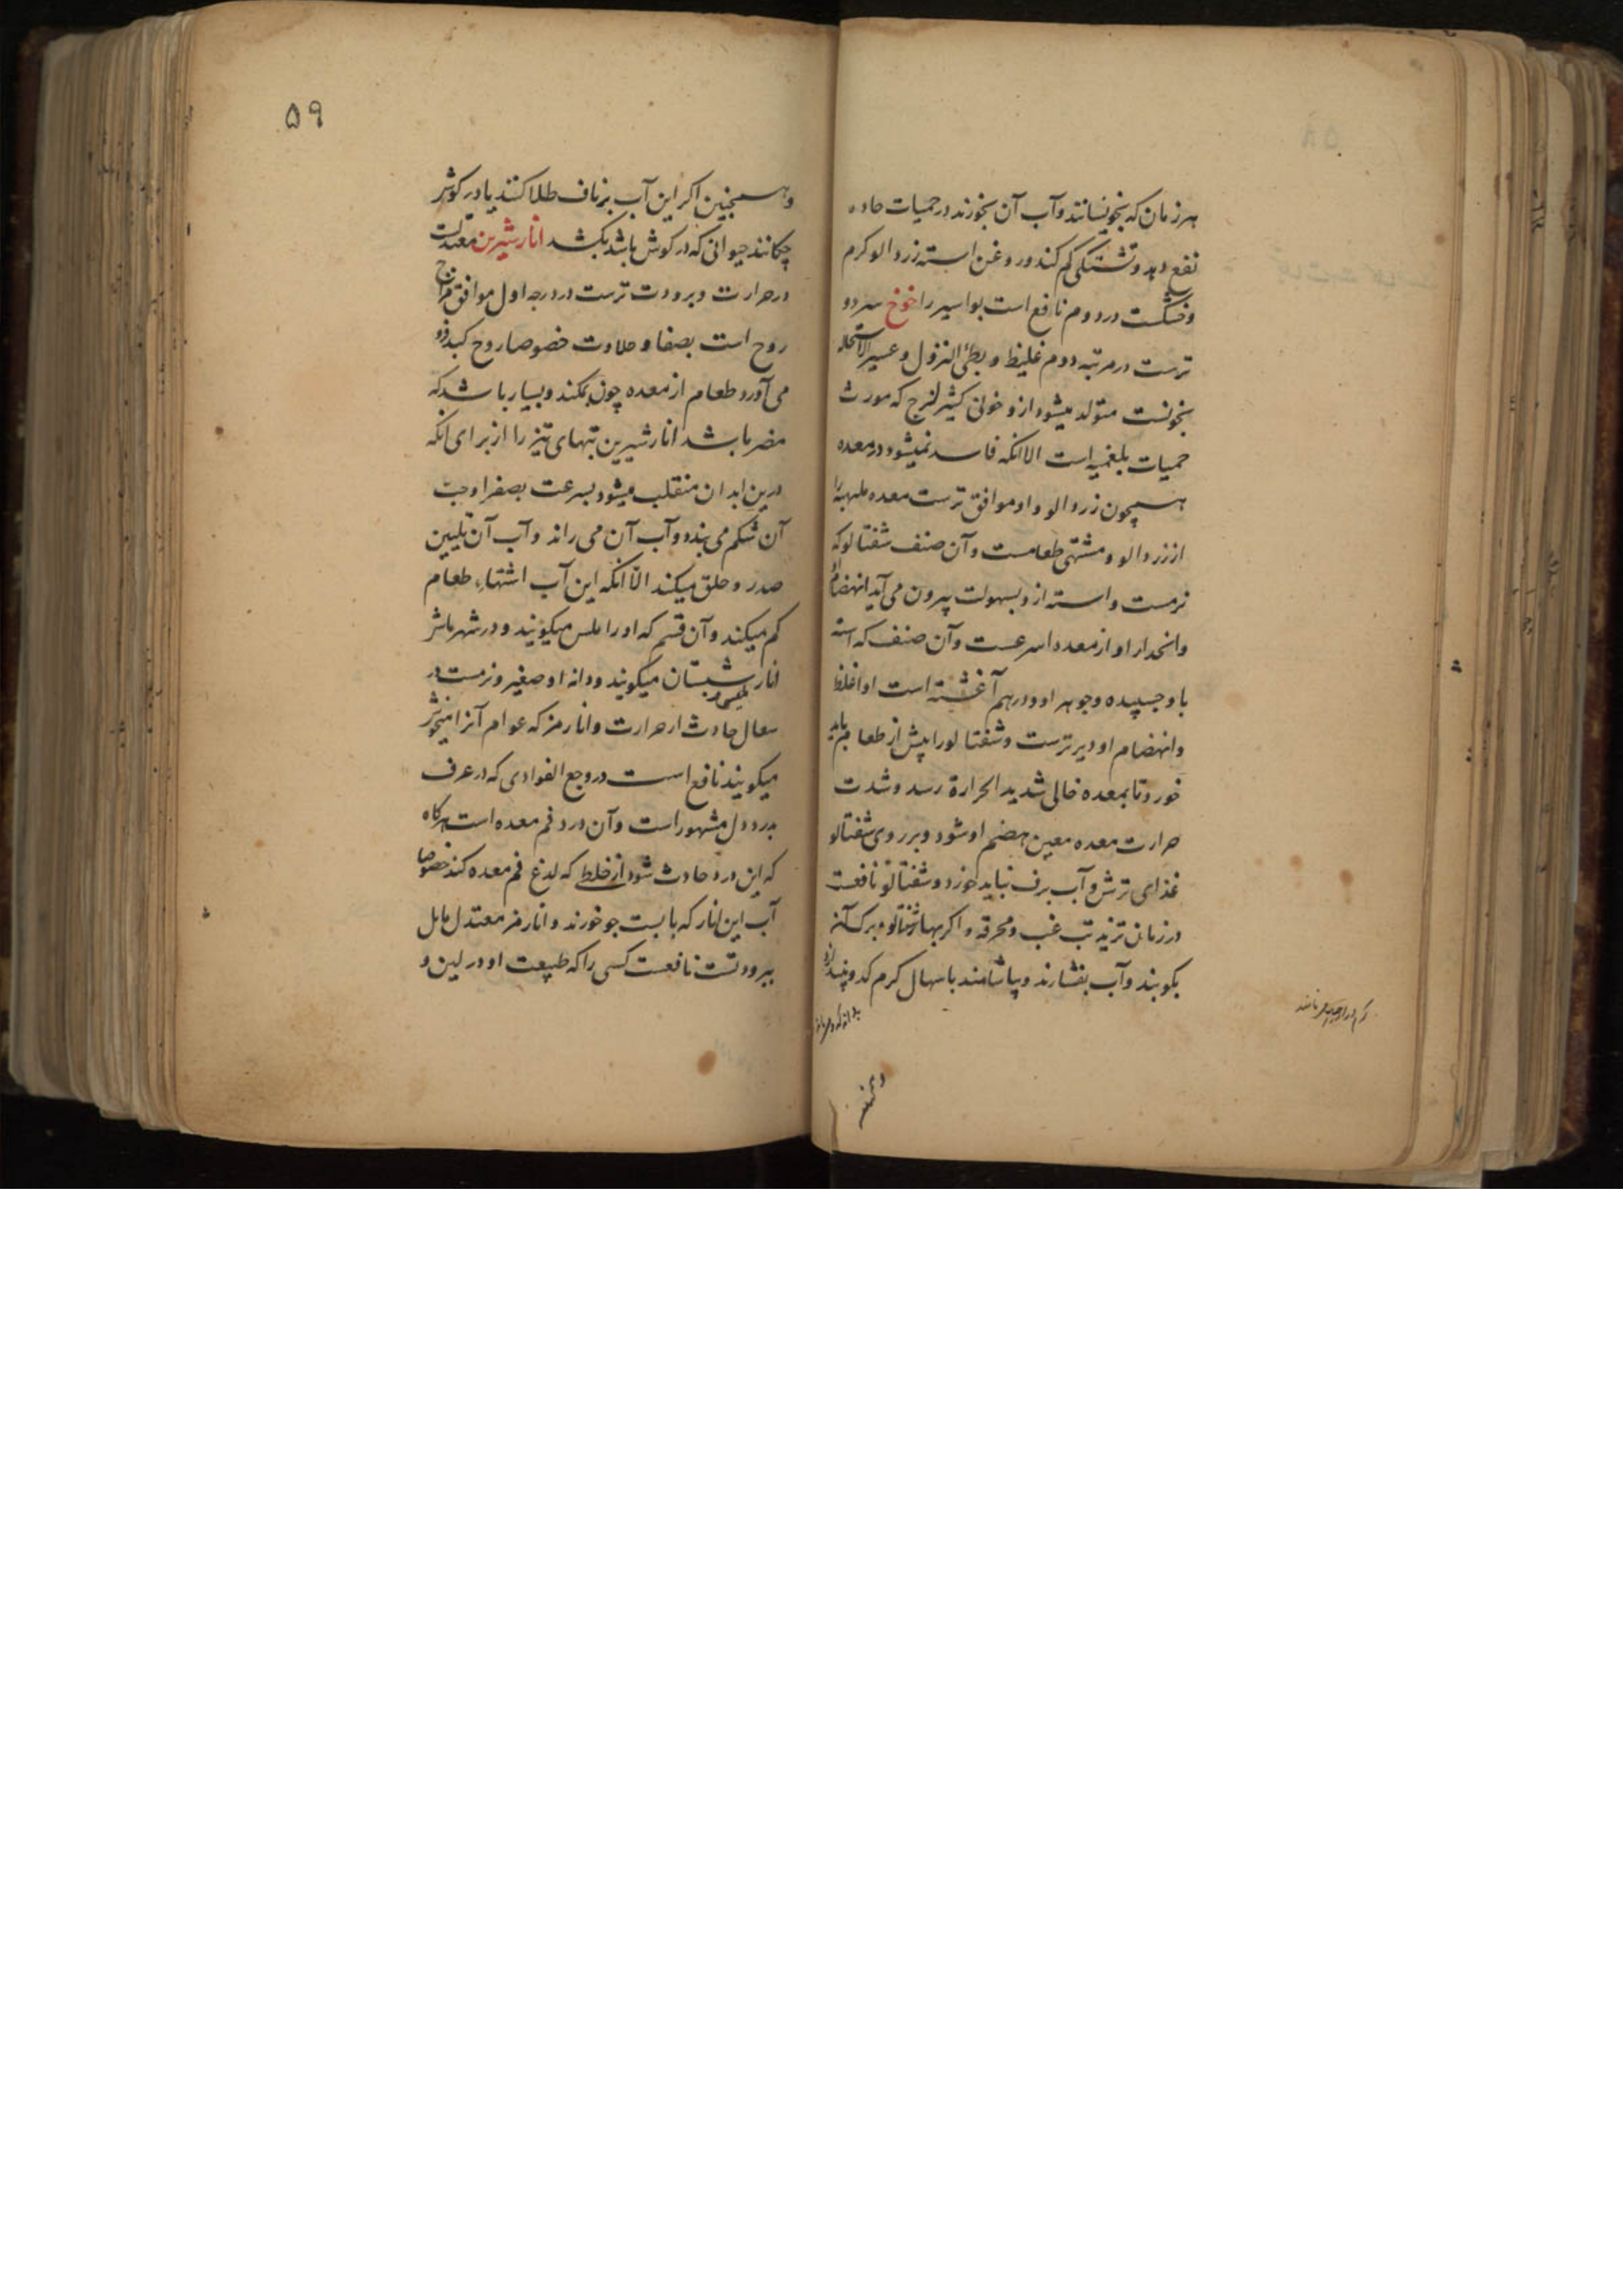 هر زمان که بخویسانند و آب آن بخورند در حمیات حاده
نفع دهد و تشنکی کم کند و روغن استه زردالو کرم
و خشکست در دوم نافع است بواسیر را خوخ سرد و
ترست در مرتبه دوم غلیظ و بطئ النزول و عسیر الاستحاله
بخونست متولد میشود ازو خونی کثیر لزج که مورث
حمیات بلغمیه است الا انکه فاسد نمیشود در معده
همچون زردالو و او موافق ترست معده ملهبه را
از زردالو و مشتهی طعامست و آن صنف شفتالو که
نرمست و استه ازو بسهولت بیرون می آید انهضام
و انحدار او از معده اسرعست و آن صنف که استه
باو چسپیده و جوهر او در هم آغشته است او اغلظ
و انهضام او دیرترست و شفتالو را پیش از طعام باید
خورد تا بمعده خالی شدید الحرارة رسد و شدت
حرارت معده معین هضم او شود و بر روی شفتالو
غذای ترش و آب برف نباید خورد و شفتالو نافعست
در زمان تزید تب غب و محرقه و اکر بهار شفتالو و برک آنرا
بکوبند و آب بفشارند و بیاشامند باسهال کرم کدو بیندازد
۵۹
و همچنین اکر این آب بر ناف طلا کنند یا در کوش
چکانند حیوانی که در کوش باشد بکشد انار شیرین معتدلست
در حرارت و برودت ترست در درجه اول موافق مزاج
روح است بصفا و حلاوت خصوصا روح کبد فرو
می آورد طعام از معده چون بمکند و بسیار باشد که
مضر باشد انار شیرین تبهای تیز را از برای انکه
درین ابدان منقلب میشود بسرعت بصفرا و حب
آن شکم می بندد و آب آن می راند و آب آن تلیین
صدر و حلق میکند الّا انکه این آب اشتهاء طعام
کم میکند و آن قسم که او را ملس میکویند و در شهر ما بر
انار شبستان میکویند و دانه او صغیر و نرمست در
سعال حادث از حرارت و انار مز که عوام آنرا میخوش
میکویند نافع است در وجع الفوادی که در عرف
بدرد دل مشهور است و آن درد فم معده است هرکاه
که این درد حادث شود از خلط که لدغ فم معده کند خصوصا
آب این انار که با پست جو خورند و انار مز معتدل مایل
ببرودتست نافعست کسی را که طبیعت او در لین و